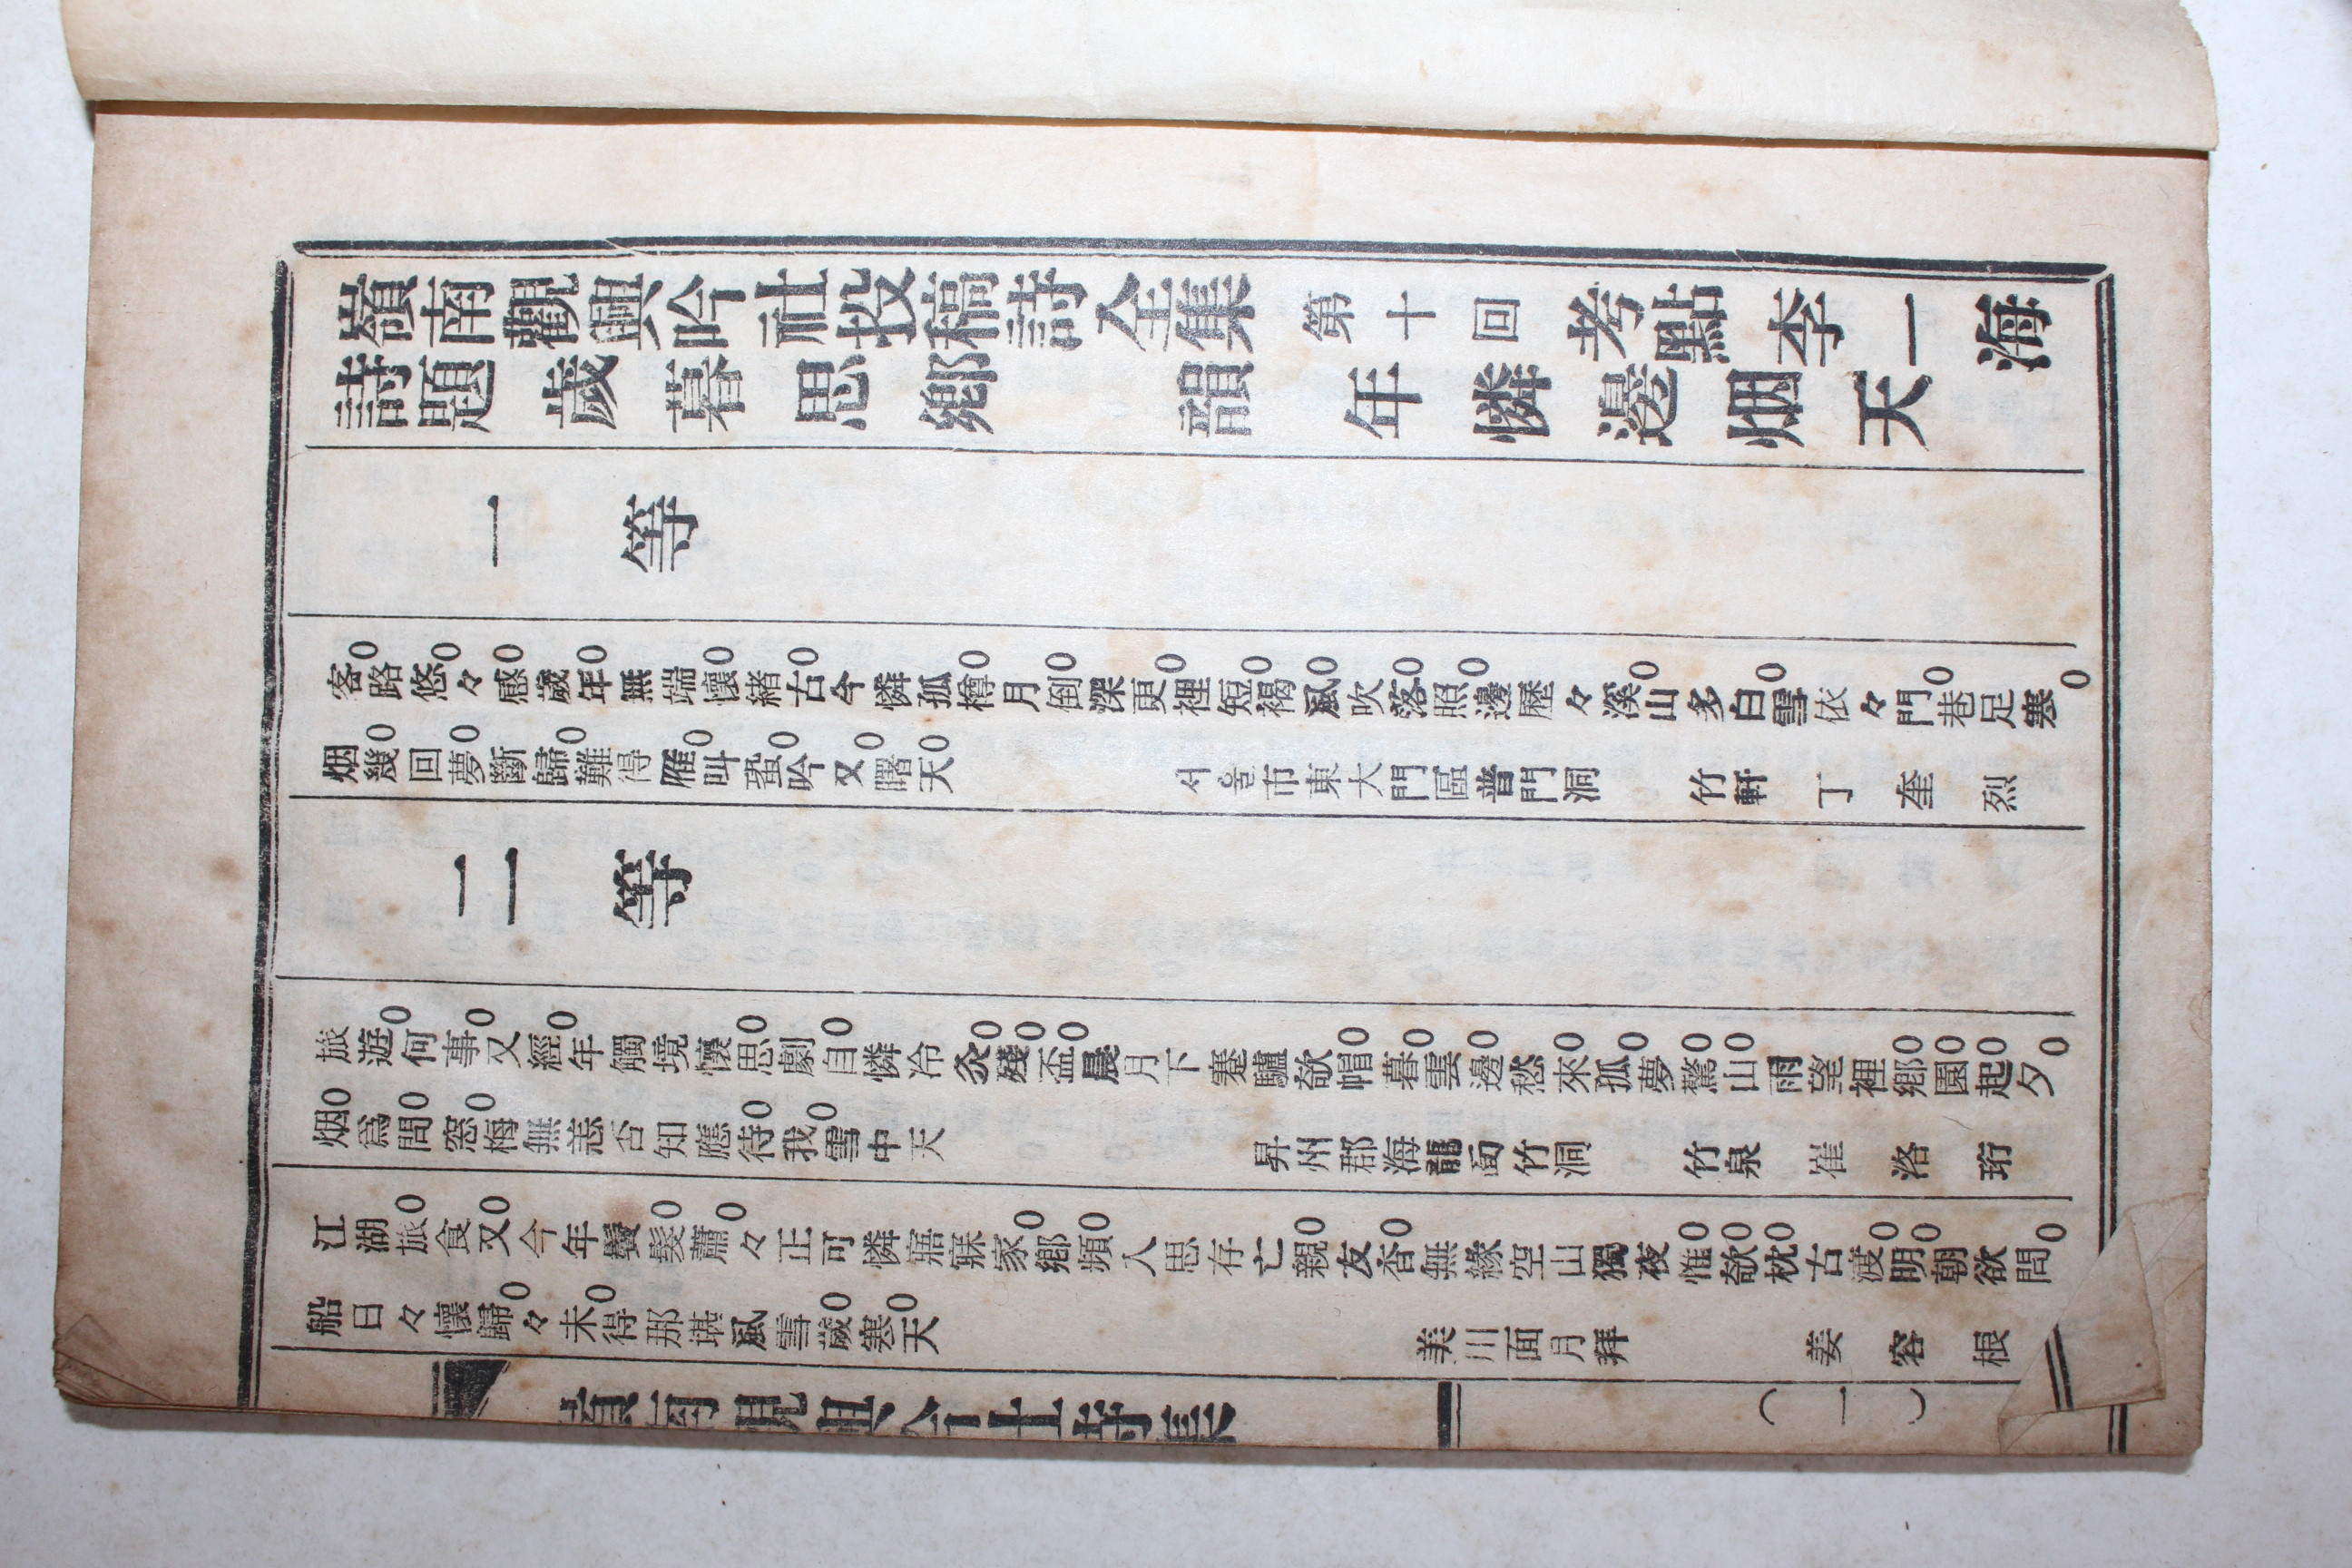 嶺南觀興吟社投稿詩全集 第十回 考點 李一海
詩題 歲暮思鄕 韻 年憐邊烟天
一等
客路悠々感歲年無端懷緖古今憐孤樽月倒深更裡短褐風吹落照邊歷々溪山多白雪依々門巷足寒
烟幾回夢斷歸難得雁叫蛩吟又曙天 서울市東大門區普門洞 竹軒 丁奎烈
二等
旅遊何事又經年觸境懷思劇自憐冷灸殘盃晨月下蹇驢欹帽暮雲邊愁來孤夢驚山雨望裡鄕園起夕
烟爲問窓梅無恙否知應待我雪中天 昇州郡海龍面竹洞 竹泉 崔洛珩
江湖旅食又今年鬢髮蕭々正可憐寤寐家鄕頻入思存亡親友杳無緣空山獨夜惟欹枕古渡明朝欲問
船日々懷歸々未得那堪風雪歲寒天 美川面月拜 姜容根
嶺南觀興吟社詩集 (一)